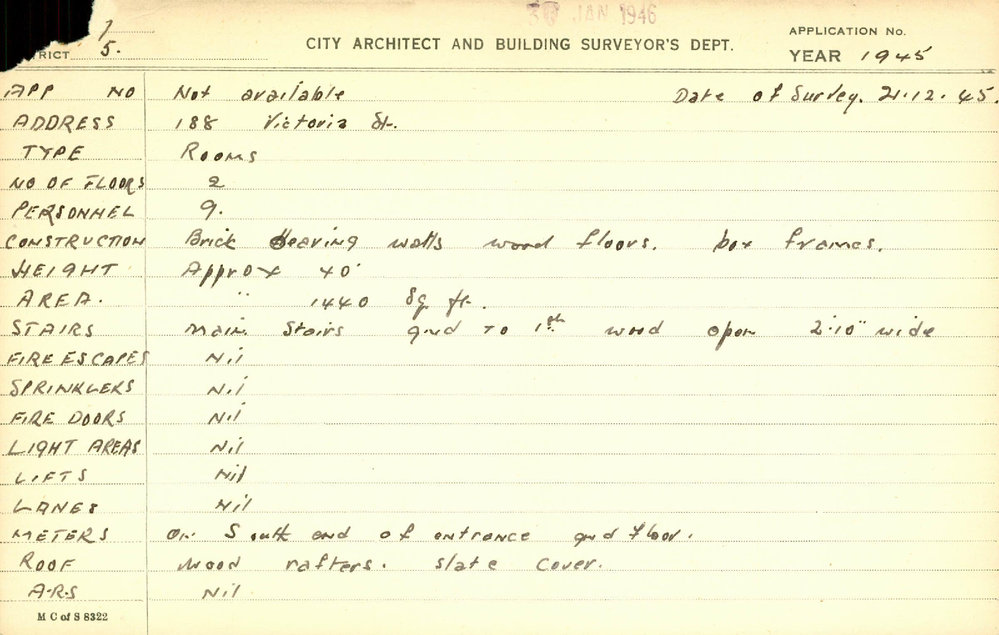 JAN 1946
TRICT 5. CITY ARCHITECT AND BUILDING SURVEYOR'S DEPT. APPLICATION No.
YEAR 1945
APP NO Not available Date of Survey. 21.12.45.
ADDRESS 188 Victoria St.
TYPE ROOMS
NO OF FLOORS 2
PERSONNEL 9.
CONSTRUCTION Brick Bearing walls wood floors. box frames.
HEIGHT Approx 40'
AREA. " 1440 Sq ft.
STAIRS Main Stairs gnd to 1st wood open 2'.10" wide
FIRE ESCAPES Nil
SPRINKLERS Nil
FIRE DOORS Nil
LIGHT AREAS Nil
LIFTS Nil
LANES Nil
METERS On South end of entrance gnd floor.
ROOF wood rafters. slate cover.
A.R.S Nil
M C of S 8322